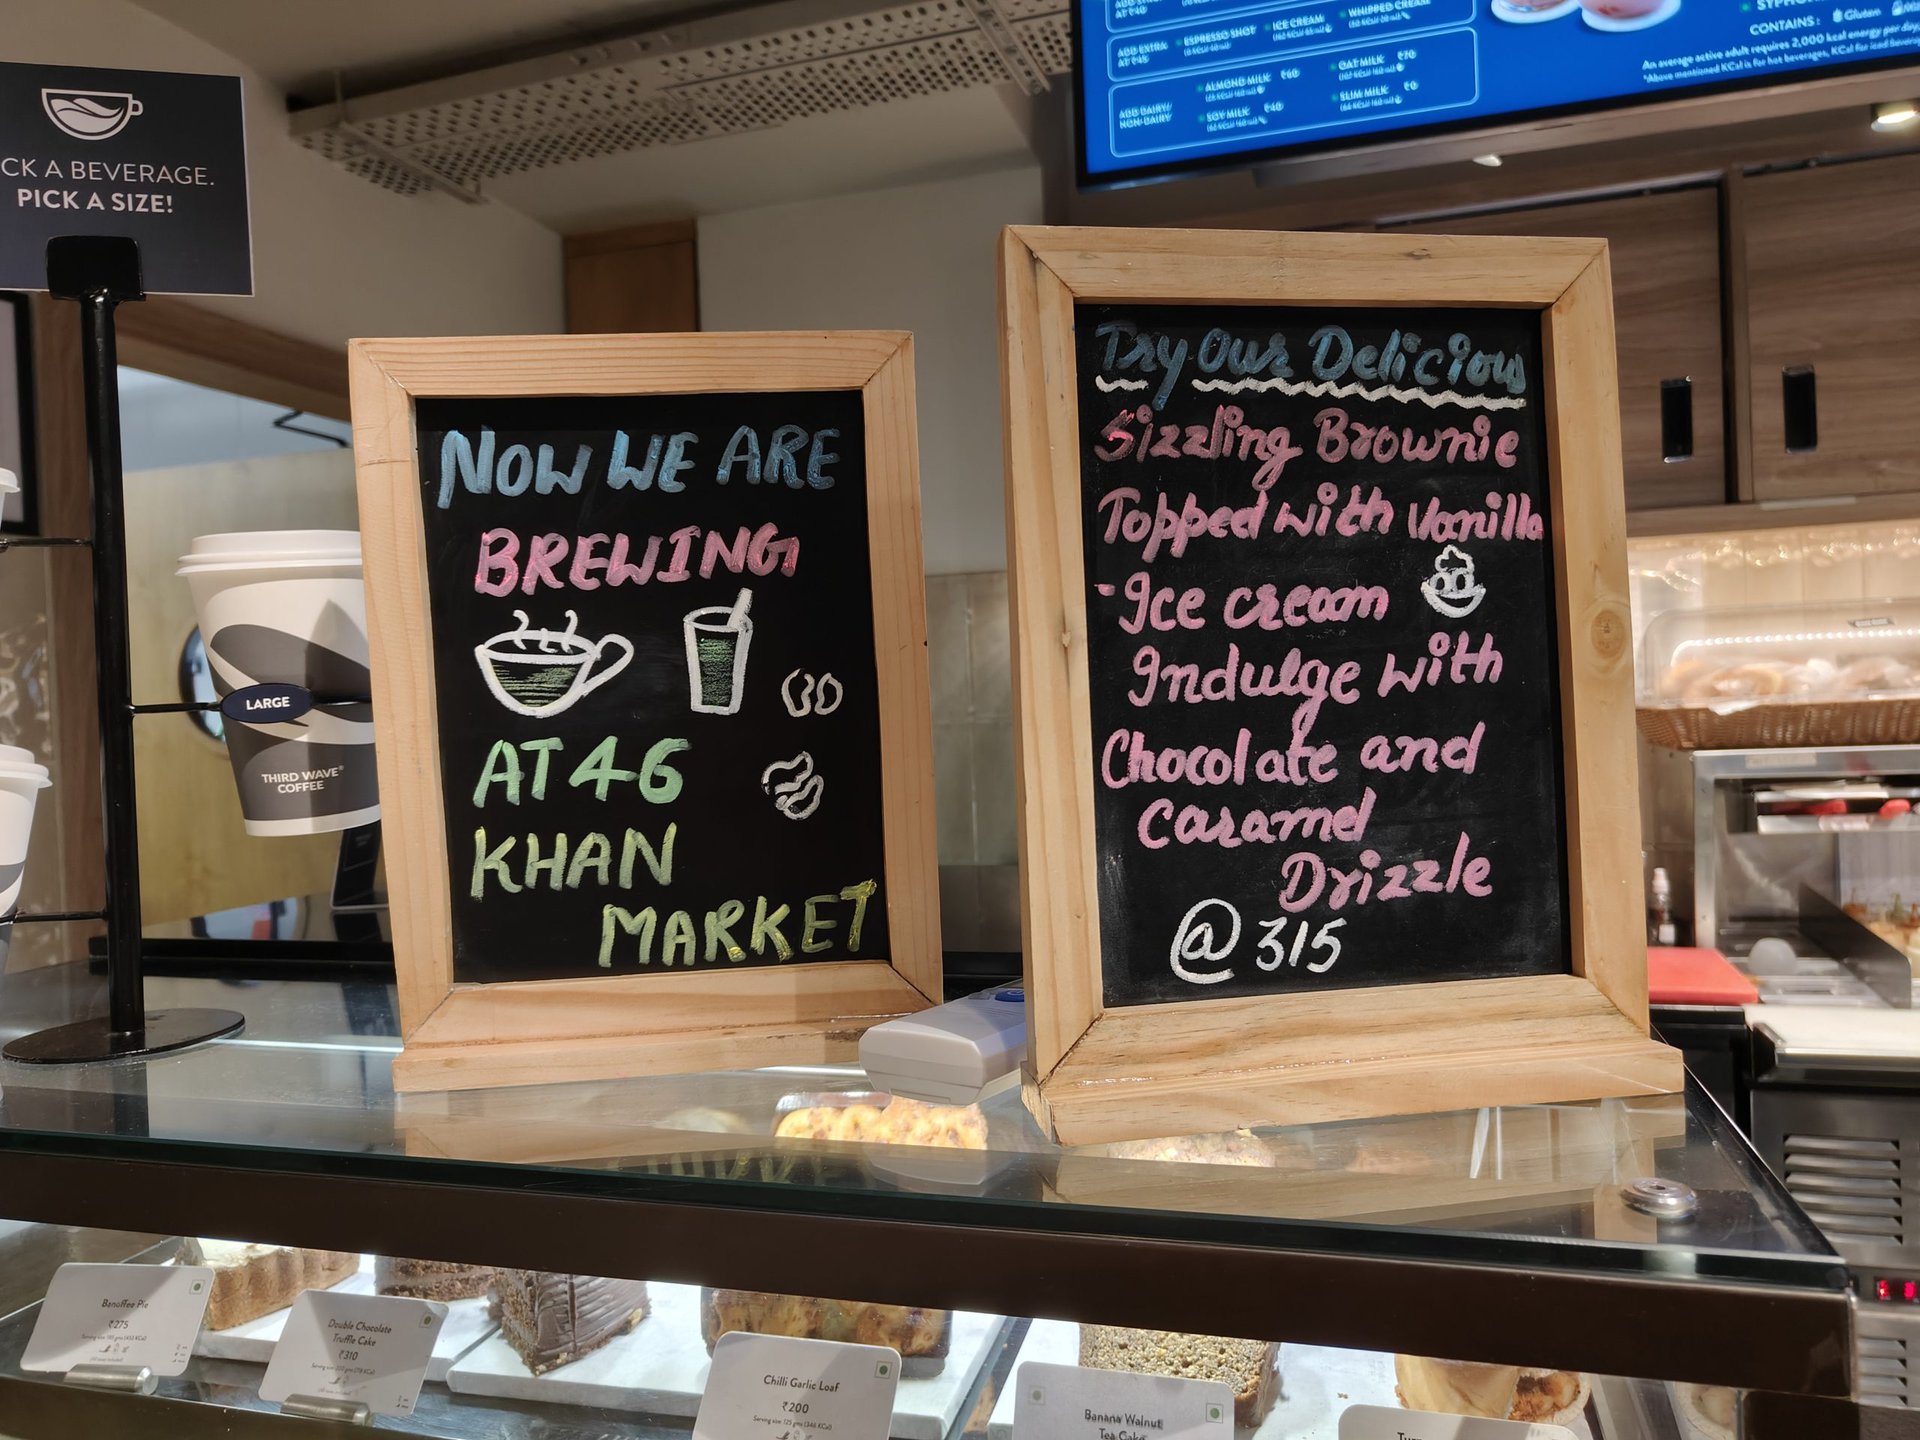 CK A BEVERAGE.
PICK A SIZE!
LARGE
THIRD WAVE®
COFFEE
NOW WE ARE
BREWING
AT 46
KHAN
MARKET
Try Our Delicious
Sizzling Brownie
Topped with Vanilla
Ice cream
Indulge with
Chocolate and
Caramel
Drizzle
@ 315
ADD EXTRA
AT ₹45
ESPRESSO SHOT
ICE CREAM
WHIPPED CREAM
ADD DAIRY/
NON-DAIRY
ALMOND MILK ₹60
OAT MILK ₹70
SOY MILK ₹40
SLIM MILK ₹0
CONTAINS: Gluten
An average active adult requires 2,000 kcal energy per day,
*Above mentioned KCal is for hot beverages, KCal for iced
Banoffee Pie
₹275
Double Chocolate
Truffle Cake
₹310
Chilli Garlic Loaf
₹200
Serving size: 125 gms (346 KCal)
Banana Walnut
Tea Cake